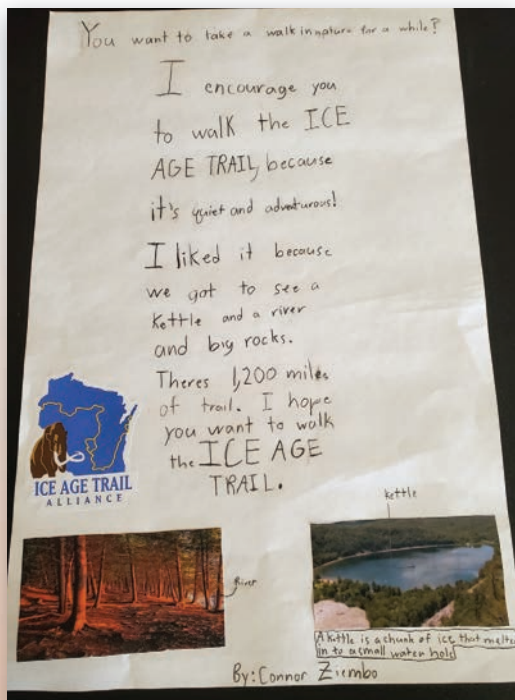 You want to take a walk in nature for a while?
I encourage you
to walk the ICE
AGE TRAIL, because
it's quiet and adventurous!
I liked it because
we got to see a
kettle and a river
and big rocks.
Theres 1,200 miles
of trail. I hope
you want to walk
the ICE AGE
TRAIL.
ICE AGE TRAIL
ALLIANCE
River
kettle
A kettle is a chunk of ice that melted
in to a small water hole
By: Connor Ziembo